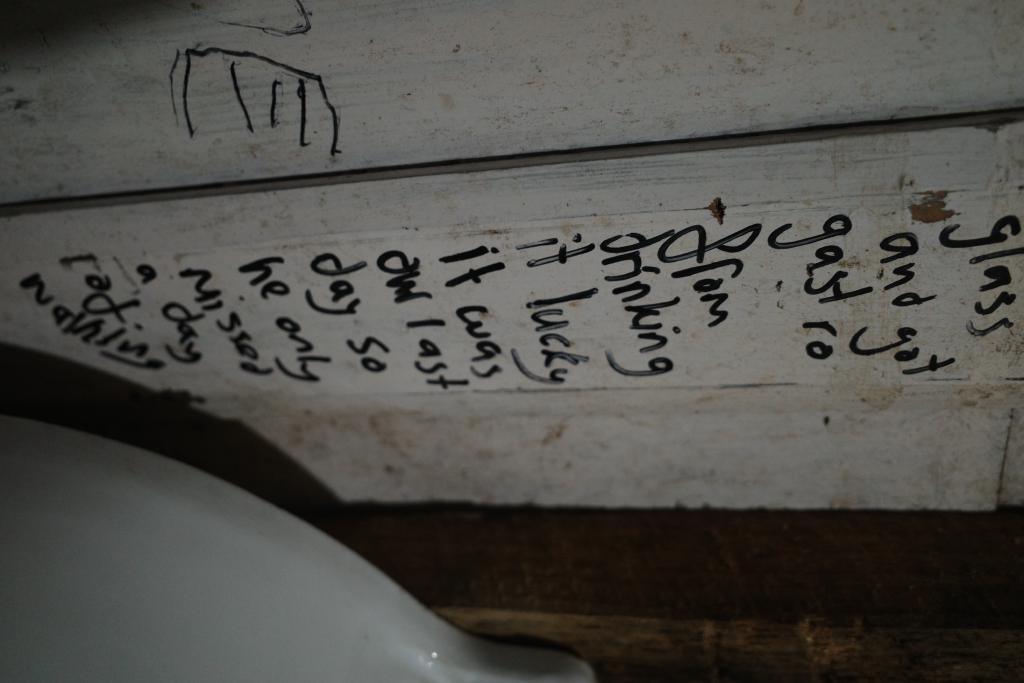 glass
and got
gast ro
from
drinking
it lucky
it was
our last
day so
he only
missed
a day
rafting